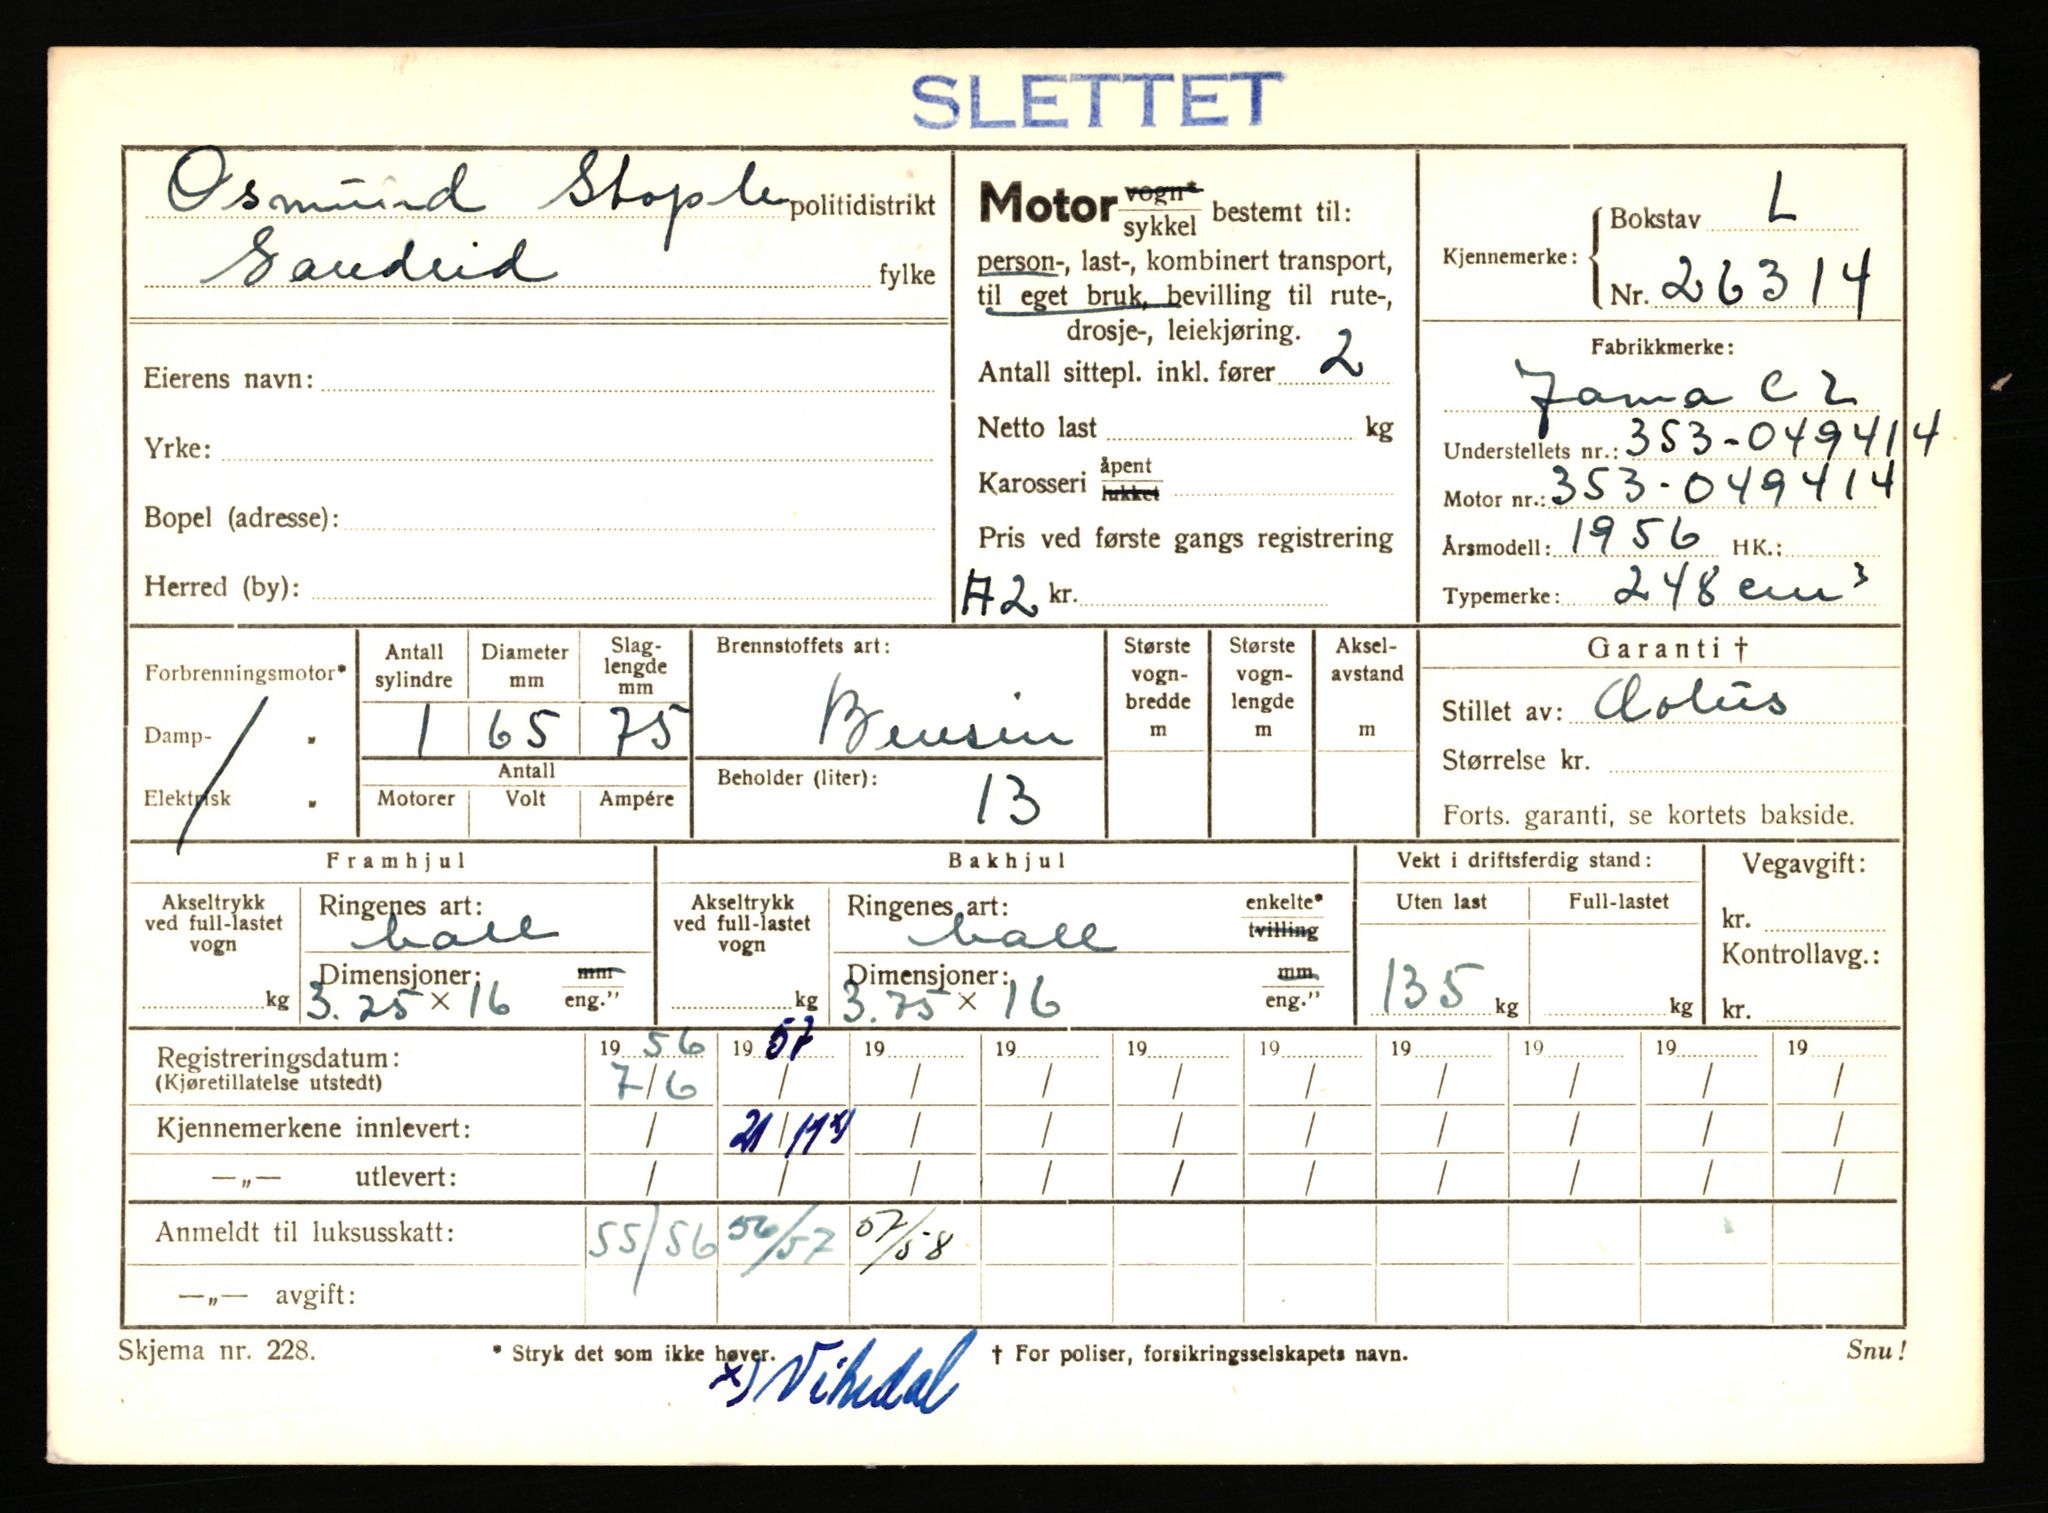 SLETTET
Osmund Stople politidistrikt
Sandeid fylke
Eierens navn:
Yrke:
Bopel (adresse):
Herred (by):
Motor vogn* sykkel bestemt til:
person-, last-, kombinert transport,
til eget bruk, bevilling til rute-,
drosje-, leiekjøring.
Antall sittepl. inkl. fører 2
Netto last kg
Karosseri åpent lukket
Pris ved første gangs registrering
A2 kr.
Kjennemerke: Bokstav L
Nr. 26314
Fabrikkmerke:
Jawa CZ
Understellets nr.: 353-049414
Motor nr.: 353-049414
Årsmodell: 1956 HK.:
Typemerke: 248 cm³
Forbrenningsmotor*
Damp- "
Elektrisk "
Antall sylindre Diameter mm Slag-lengde mm
1 65 75
Antall
Motorer Volt Ampére
Brennstoffets art:
Bensin
Beholder (liter):
13
Største vogn-bredde m
Største vogn-lengde m
Aksel-avstand m
Garanti †
Stillet av: Aolus
Størrelse kr.
Forts. garanti, se kortets bakside.
Framhjul
Akseltrykk ved full-lastet vogn
kg
Ringenes art:
ball
Dimensjoner: mm
3.25 × 16 eng."
Bakhjul
Akseltrykk ved full-lastet vogn
kg
Ringenes art: enkelte*
ball tvilling
Dimensjoner: mm
3.25 × 16 eng."
Vekt i driftsferdig stand:
Uten last Full-lastet
135 kg kg
Vegavgift:
kr.
Kontrollavg.:
kr.
Registreringsdatum: 19 56 19 57 19 19 19 19 19 19 19 19
(Kjøretillatelse utstedt) 7/6 / / / / / / / / /
Kjennemerkene innlevert: / 21/11 x) / / / / / / / /
—„— utlevert: / / / / / / / / / /
Anmeldt til luksusskatt: 55/56 56/57 57/58
—„— avgift:
Skjema nr. 228. * Stryk det som ikke høver. † For poliser, forsikringsselskapets navn. Snu!
x) Vikedal